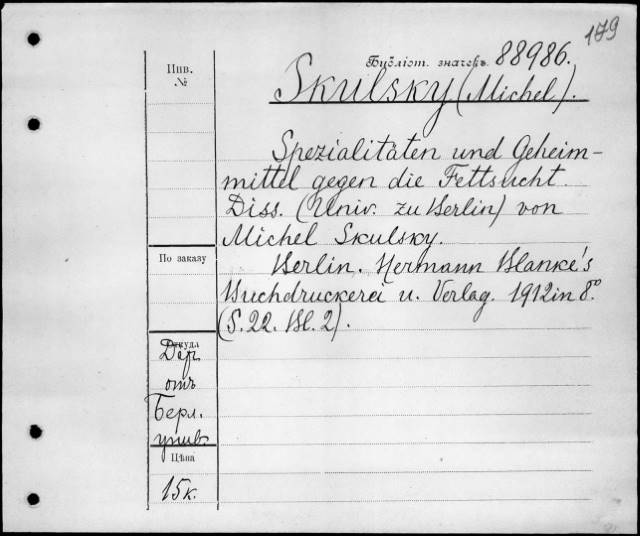 179
Библіот. значекъ. 88986.
Skulsky (Michel).
Spezialitäten und Geheim-
mittel gegen die Fettsucht.
Diss. (Univ. zu Berlin) von
Michel Skulsky.
Berlin. Hermann Blanke's
Buchdruckerei u. Verlag. 1912 in 8º.
(S. 22. Bl. 2).
Инв.
№
По заказу
Откуда
Дер.
отъ
Берл.
унив.
Цѣна
15к.